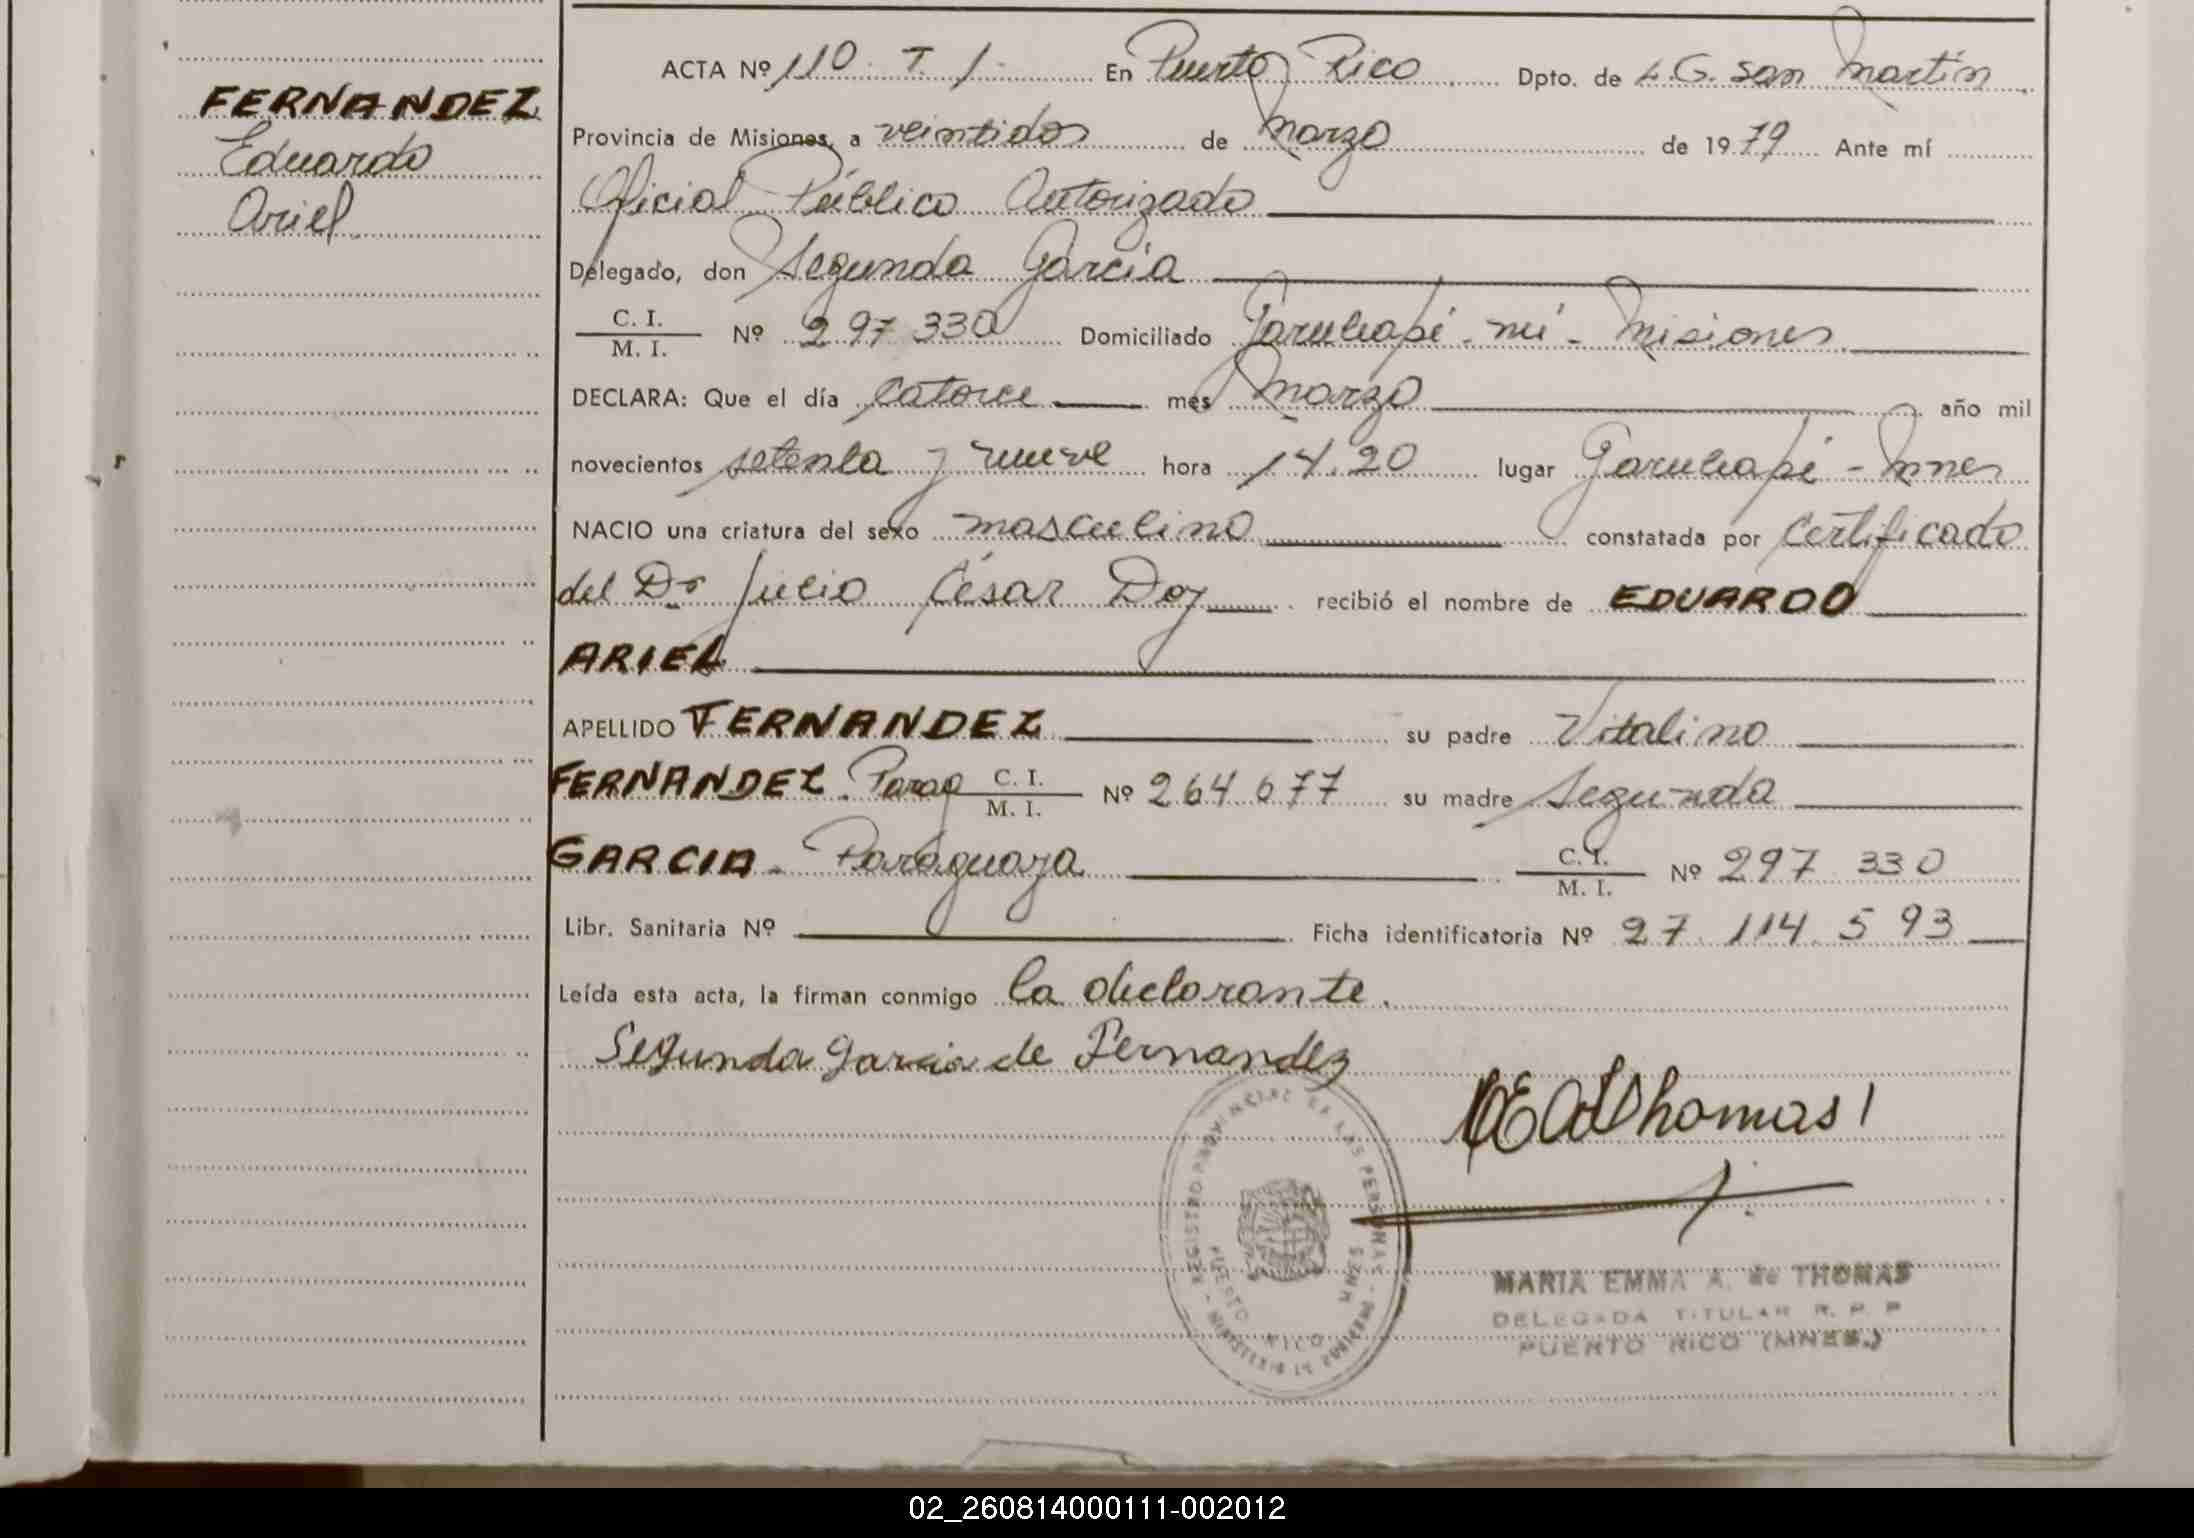 FERNANDEZ
Eduardo
Ariel
ACTA Nº 110. T. 1. En Puerto Rico Dpto. de L. G. San Martín
Provincia de Misiones, a veintidos de Marzo de 1979 Ante mí
Oficial Público Autorizado
Delegado, don Segunda García
C. I. / M. I. Nº 297 330 Domiciliado Garuhapé-mí - Misiones
DECLARA: Que el día catorce mes Marzo año mil
novecientos setenta y nueve hora 14.20 lugar Garuhapé - Mnes
NACIO una criatura del sexo masculino constatada por Certificado
del Dr Julio César Doz recibió el nombre de EDUARDO
ARIEL
APELLIDO FERNANDEZ su padre Vitalino
FERNANDEZ. Parag C. I. / M. I. Nº 264 677 su madre Segunda
GARCIA - Paraguaya C. I. / M. I. Nº 297 330
Libr. Sanitaria Nº Ficha identificatoria Nº 27.114.593
Leída esta acta, la firman conmigo la declarante.
Segunda Garcia de Fernandez
Thomas
REGISTRO PROVINCIAL DE LAS PERSONAS - MINISTERIO DE
PUERTO RICO MNES
MARIA EMMA A. de THOMAS
DELEGADA TITULAR R. P. P
PUERTO RICO (MNES.)
02_260814000111-002012